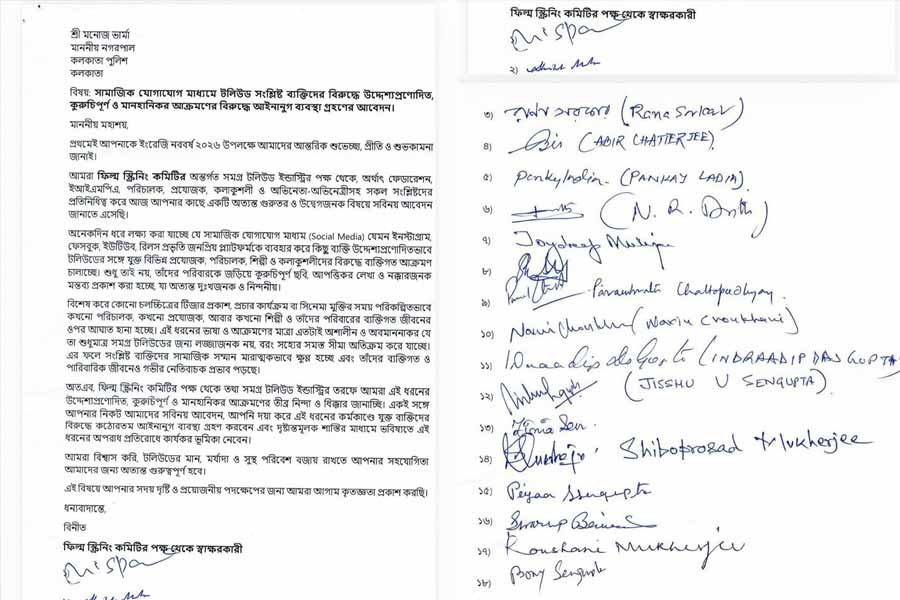 শ্রী মনোজ ভার্মা
মাননীয় নগরপাল
কলকাতা পুলিশ
কলকাতা
বিষয়: সামাজিক যোগাযোগ মাধ্যমে টলিউড সংশ্লিষ্ট ব্যক্তিদের বিরুদ্ধে উদ্দেশ্যপ্রণোদিত,
কুরুচিপূর্ণ ও মানহানিকর আক্রমণের বিরুদ্ধে আইনানুগ ব্যবস্থা গ্রহণের আবেদন।
মাননীয় মহাশয়,
প্রথমেই আপনাকে ইংরেজি নববর্ষ ২০২৬ উপলক্ষে আমাদের আন্তরিক শুভেচ্ছা, প্রীতি ও শুভকামনা
জানাই।
আমরা ফিল্ম স্ক্রিনিং কমিটির অন্তর্গত সমগ্র টলিউড ইন্ডাস্ট্রির পক্ষ থেকে, অর্থাৎ ফেডারেশন,
ইআইএমপিএ, পরিচালক, প্রযোজক, কলাকুশলী ও অভিনেতা-অভিনেত্রীসহ সকল সংশ্লিষ্টদের
প্রতিনিধিত্ব করে আজ আপনার কাছে একটি অত্যন্ত গুরুতর ও উদ্বেগজনক বিষয়ে সবিনয় আবেদন
জানাতে এসেছি।
অনেকদিন ধরে লক্ষ্য করা যাচ্ছে যে সামাজিক যোগাযোগ মাধ্যম (Social Media) যেমন ইনস্টাগ্রাম,
ফেসবুক, ইউটিউব, রিলস প্রভৃতি জনপ্রিয় প্ল্যাটফর্মকে ব্যবহার করে কিছু ব্যক্তি উদ্দেশ্যপ্রণোদিতভাবে
টলিউডের সঙ্গে যুক্ত বিভিন্ন প্রযোজক, পরিচালক, শিল্পী ও কলাকুশলীদের বিরুদ্ধে ব্যক্তিগত আক্রমণ
চালাচ্ছে। শুধু তাই নয়, তাঁদের পরিবারকে জড়িয়ে কুরুচিপূর্ণ ছবি, আপত্তিকর লেখা ও নক্কারজনক
মন্তব্য প্রকাশ করা হচ্ছে, যা অত্যন্ত দুঃখজনক ও নিন্দনীয়।
বিশেষ করে কোনো চলচ্চিত্রের টিজার প্রকাশ, প্রচার কার্যক্রম বা সিনেমা মুক্তির সময় পরিকল্পিতভাবে
কখনো পরিচালক, কখনো প্রযোজক, আবার কখনো শিল্পী ও তাঁদের পরিবারের ব্যক্তিগত জীবনের
ওপর আঘাত হানা হচ্ছে। এই ধরনের ভাষা ও আক্রমণের মাত্রা এতটাই অশালীন ও অবমাননাকর যে
তা শুধুমাত্র সমগ্র টলিউডের জন্য লজ্জাজনক নয়, বরং সহ্যের সমস্ত সীমা অতিক্রম করে যাচ্ছে।
এর ফলে সংশ্লিষ্ট ব্যক্তিদের সামাজিক সম্মান মারাত্মকভাবে ক্ষুন্ন হচ্ছে এবং তাঁদের ব্যক্তিগত ও
পারিবারিক জীবনেও গভীর নেতিবাচক প্রভাব পড়ছে।
অতএব, ফিল্ম স্ক্রিনিং কমিটির পক্ষ থেকে তথা সমগ্র টলিউড ইন্ডাস্ট্রির তরফে আমরা এই ধরনের
উদ্দেশ্যপ্রণোদিত, কুরুচিপূর্ণ ও মানহানিকর আক্রমণের তীব্র নিন্দা ও ধিক্কার জানাচ্ছি। একই সঙ্গে
আপনার নিকট আমাদের সবিনয় আবেদন, আপনি দয়া করে এই ধরনের কর্মকাণ্ডে যুক্ত ব্যক্তিদের
বিরুদ্ধে কঠোরতম আইনানুগ ব্যবস্থা গ্রহণ করবেন এবং দৃষ্টান্তমূলক শাস্তির মাধ্যমে ভবিষ্যতে এই
ধরনের অপরাধ প্রতিরোধে কার্যকর ভূমিকা নেবেন।
আমরা বিশ্বাস করি, টলিউডের মান, মর্যাদা ও সুস্থ পরিবেশ বজায় রাখতে আপনার সহযোগিতা
আমাদের জন্য অত্যন্ত গুরুত্বপূর্ণ হবে।
এই বিষয়ে আপনার সদয় দৃষ্টি ও প্রয়োজনীয় পদক্ষেপের জন্য আমরা আগাম কৃতজ্ঞতা প্রকাশ করছি।
ধন্যবাদান্তে,
বিনীত
ফিল্ম স্ক্রিনিং কমিটির পক্ষ থেকে স্বাক্ষরকারী
ফিল্ম স্ক্রিনিং কমিটির পক্ষ থেকে স্বাক্ষরকারী
২)
৩) (Rana Sarkar)
৪) (ABIR CHATTERJEE)
৫) (PANKAJ LADIA)
৬)
৭) Joydeep
৮)
৯)
১০)
১১) (INDRAADIP DAS GUPTA)
১২) (JISSHU U SENGUPTA)
১৩) Sen
১৪) Shiboprosad Mukherjee
১৫) Piyaa Sengupta
১৬) Swarup
১৭) Roushani Mukherjee
১৮) Bony Sengupta